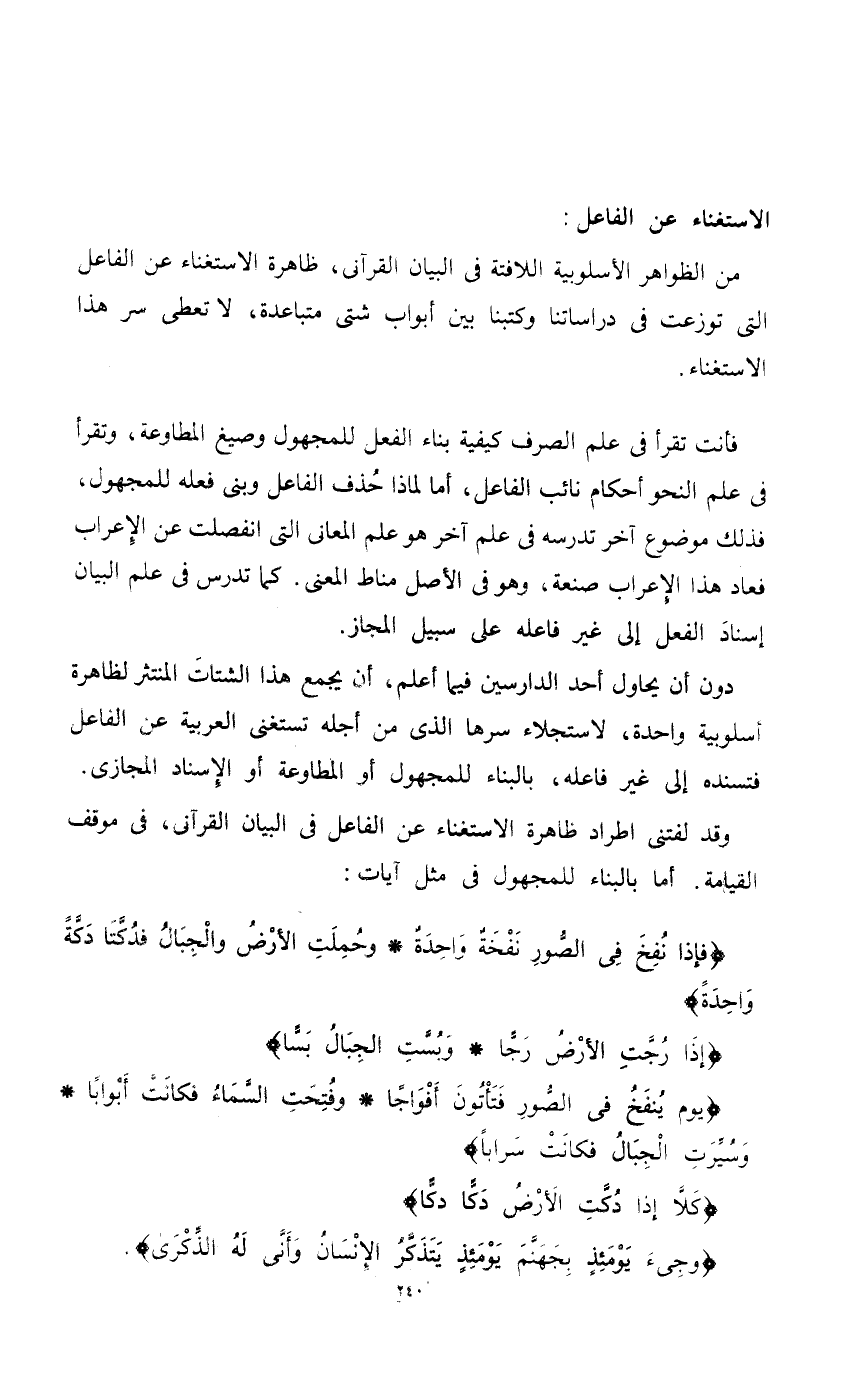 الاستغناء عن الفاعل :
من الظواهر الأسلوبية اللافتة فى البيان القرآنى، ظاهرة الاستغناء عن الفاعل
التى توزعت فى دراساتنا وكتبنا بين أبواب شتى متباعدة، لا تعطى سر هذا
الاستغناء.
فأنت تقرأ فى علم الصرف كيفية بناء الفعل للمجهول وصيغ المطاوعة، وتقرأ
فى علم النحو أحكام نائب الفاعل، أما لماذا حُذف الفاعل وبنى فعله للمجهول،
فذلك موضوع آخر تدرسه فى علم آخر هو علم المعانى التى انفصلت عن الإعراب
فعاد هذا الإعراب صنعة، وهو فى الأصل مناط المعنى. كما تدرس فى علم البيان
إسنادَ الفعل إلى غير فاعله على سبيل المجاز.
دون أن يحاول أحد الدارسين فيما أعلم، أن يجمع هذا الشتاتَ المنتثر لظاهرة
أسلوبية واحدة، لاستجلاء سرها الذى من أجله تستغنى العربية عن الفاعل
فتسنده إلى غير فاعله، بالبناء للمجهول أو المطاوعة أو الإسناد المجازى.
وقد لفتنى اطراد ظاهرة الاستغناء عن الفاعل فى البيان القرآنى، فى موقف
القيامة. أما بالبناء للمجهول فى مثل آيات :
﴿فإذا نُفِخَ فِى الصُّورِ نَفْخَةٌ وَاحِدَةٌ * وحُمِلَتِ الأرْضُ والْجِبَالُ فدُكَّتَا دَكَّةً
وَاحِدَةً﴾
﴿إذَا رُجَّتِ الأرْضُ رَجًّا * وَبُسَّتِ الجِبَالُ بَسًّا﴾
﴿يوم يُنفَخُ فى الصُّورِ فَتَأْتُونَ أَفْوَاجًا * وفُتِحَتِ السَّمَاءُ فكانَتْ أَبْوابًا *
وَسُيِّرَتِ الْجِبَالُ فكانَتْ سَراباً﴾
﴿كَلَّا إذا دُكَّتِ الَأرْضُ دَكًّا دكًّا﴾
﴿وجِىءَ يَوْمَئِذٍ بِجَهَنَّمَ يَوْمَئِذٍ يَتَذَكَّرُ الإنْسَانُ وَأَنَّى لَهُ الذِّكْرَى﴾.
٢٤٠